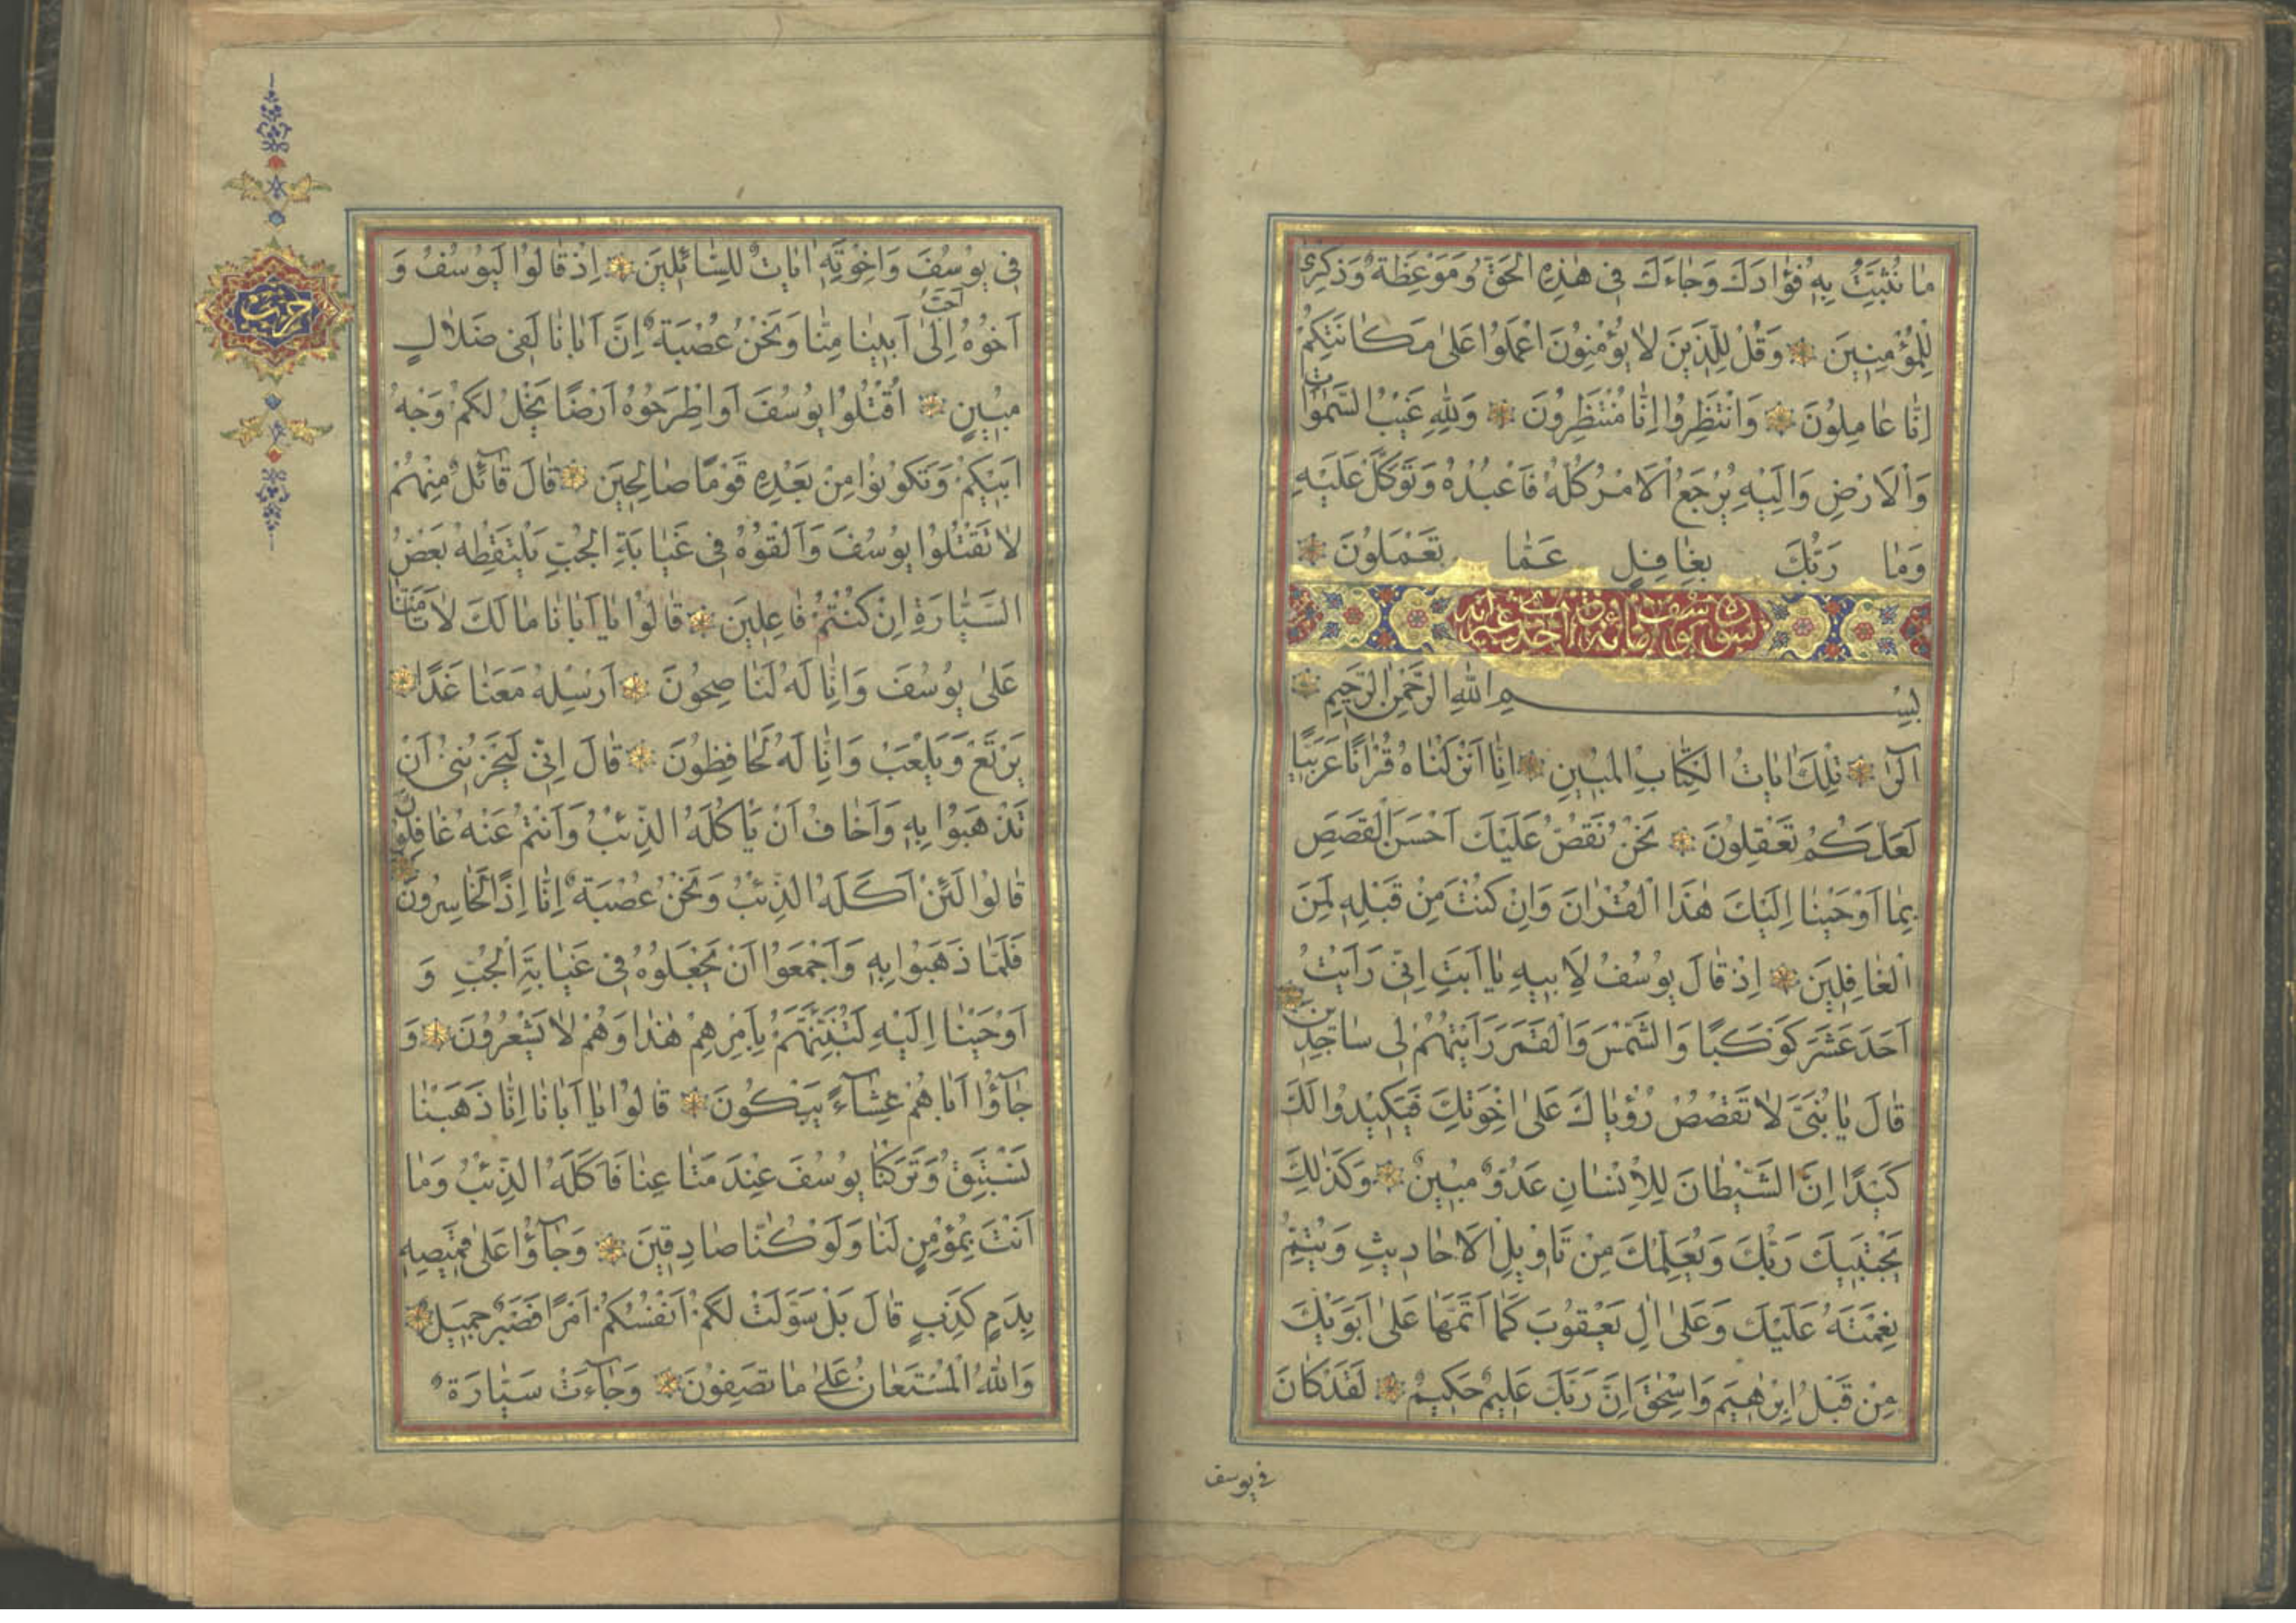 مَا نُثَبِّتُ بِهِ فُؤَادَكَ وَجَاءَكَ فِي هٰذِهِ الْحَقُّ وَمَوْعِظَةٌ وَذِكْرٰى
لِلْمُؤْمِنِينَ وَقُلْ لِلَّذِينَ لَا يُؤْمِنُونَ اعْمَلُوا عَلٰى مَكَانَتِكُمْ
اِنَّا عَامِلُونَ وَانْتَظِرُوا اِنَّا مُنْتَظِرُونَ وَلِلّٰهِ غَيْبُ السَّمٰوَاتِ
وَالْاَرْضِ وَاِلَيْهِ يُرْجَعُ الْاَمْرُ كُلُّهُ فَاعْبُدْهُ وَتَوَكَّلْ عَلَيْهِ
وَمَا رَبُّكَ بِغَافِلٍ عَمَّا تَعْمَلُونَ
سورة يوسف مائة واحدى عشر آية
بِسْمِ اللّٰهِ الرَّحْمٰنِ الرَّحِيمِ
الٓرٰ تِلْكَ اٰيَاتُ الْكِتَابِ الْمُبِينِ اِنَّا اَنْزَلْنَاهُ قُرْاٰنًا عَرَبِيًّا
لَعَلَّكُمْ تَعْقِلُونَ نَحْنُ نَقُصُّ عَلَيْكَ اَحْسَنَ الْقَصَصِ
بِمَا اَوْحَيْنَا اِلَيْكَ هٰذَا الْقُرْاٰنَ وَاِنْ كُنْتَ مِنْ قَبْلِهِ لَمِنَ
الْغَافِلِينَ اِذْ قَالَ يُوسُفُ لِاَبِيهِ يَا اَبَتِ اِنِّي رَاَيْتُ
اَحَدَ عَشَرَ كَوْكَبًا وَالشَّمْسَ وَالْقَمَرَ رَاَيْتُهُمْ لِي سَاجِدِينَ
قَالَ يَا بُنَيَّ لَا تَقْصُصْ رُؤْيَاكَ عَلٰى اِخْوَتِكَ فَيَكِيدُوا لَكَ
كَيْدًا اِنَّ الشَّيْطَانَ لِلْاِنْسَانِ عَدُوٌّ مُبِينٌ وَكَذٰلِكَ
يَجْتَبِيكَ رَبُّكَ وَيُعَلِّمُكَ مِنْ تَاْوِيلِ الْاَحَادِيثِ وَيُتِمُّ
نِعْمَتَهُ عَلَيْكَ وَعَلٰى اٰلِ يَعْقُوبَ كَمَا اَتَمَّهَا عَلٰى اَبَوَيْكَ
مِنْ قَبْلُ اِبْرٰهِيمَ وَاِسْحٰقَ اِنَّ رَبَّكَ عَلِيمٌ حَكِيمٌ لَقَدْ كَانَ
في يوسف
فِي يُوسُفَ وَاِخْوَتِهِ اٰيَاتٌ لِلسَّائِلِينَ اِذْ قَالُوا لَيُوسُفُ وَ
اَخُوهُ اَحَبُّ اِلٰى اَبِينَا مِنَّا وَنَحْنُ عُصْبَةٌ اِنَّ اَبَانَا لَفِي ضَلَالٍ
مُبِينٍ اُقْتُلُوا يُوسُفَ اَوِ اطْرَحُوهُ اَرْضًا يَخْلُ لَكُمْ وَجْهُ
اَبِيكُمْ وَتَكُونُوا مِنْ بَعْدِهِ قَوْمًا صَالِحِينَ قَالَ قَائِلٌ مِنْهُمْ
لَا تَقْتُلُوا يُوسُفَ وَاَلْقُوهُ فِي غَيَابَةِ الْجُبِّ يَلْتَقِطْهُ بَعْضُ
السَّيَّارَةِ اِنْ كُنْتُمْ فَاعِلِينَ قَالُوا يَا اَبَانَا مَا لَكَ لَا تَاْمَنَّا
عَلٰى يُوسُفَ وَاِنَّا لَهُ لَنَاصِحُونَ اَرْسِلْهُ مَعَنَا غَدًا
يَرْتَعْ وَيَلْعَبْ وَاِنَّا لَهُ لَحَافِظُونَ قَالَ اِنِّي لَيَحْزُنُنِي اَنْ
تَذْهَبُوا بِهِ وَاَخَافُ اَنْ يَاْكُلَهُ الذِّئْبُ وَاَنْتُمْ عَنْهُ غَافِلُونَ
قَالُوا لَئِنْ اَكَلَهُ الذِّئْبُ وَنَحْنُ عُصْبَةٌ اِنَّا اِذًا لَخَاسِرُونَ
فَلَمَّا ذَهَبُوا بِهِ وَاَجْمَعُوا اَنْ يَجْعَلُوهُ فِي غَيَابَةِ الْجُبِّ وَ
اَوْحَيْنَا اِلَيْهِ لَتُنَبِّئَنَّهُمْ بِاَمْرِهِمْ هٰذَا وَهُمْ لَا يَشْعُرُونَ وَ
جَآؤُا اَبَاهُمْ عِشَآءً يَبْكُونَ قَالُوا يَا اَبَانَا اِنَّا ذَهَبْنَا
نَسْتَبِقُ وَتَرَكْنَا يُوسُفَ عِنْدَ مَتَاعِنَا فَاَكَلَهُ الذِّئْبُ وَمَا
اَنْتَ بِمُؤْمِنٍ لَنَا وَلَوْ كُنَّا صَادِقِينَ وَجَآؤُا عَلٰى قَمِيصِهِ
بِدَمٍ كَذِبٍ قَالَ بَلْ سَوَّلَتْ لَكُمْ اَنْفُسُكُمْ اَمْرًا فَصَبْرٌ جَمِيلٌ
وَاللّٰهُ الْمُسْتَعَانُ عَلٰى مَا تَصِفُونَ وَجَآءَتْ سَيَّارَةٌ
حزب